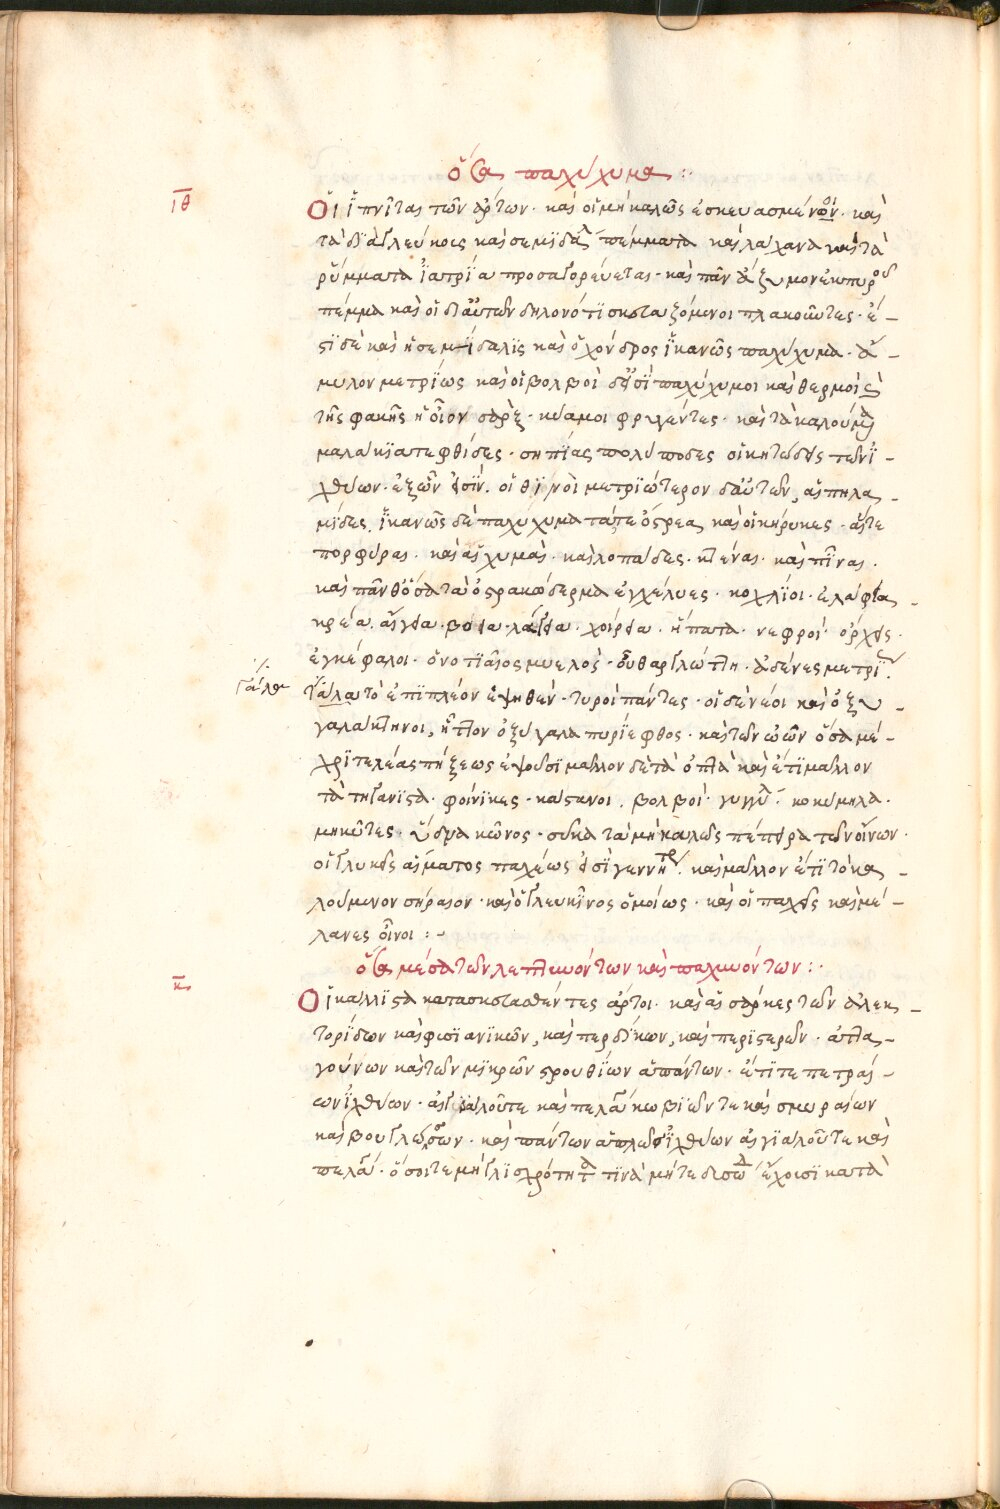 ὅσα παχύχυμα :·
ιθ
Οἱ ἰπνῖται τῶν ἄρτων · καὶ οἱ μὴ καλῶς ἐσκευασμένοι · καὶ
τὰ διὰ γλεύκους καὶ σεμιδάλ πέμματα καὶ λάχανα καὶ τὰ
ῥύμματα ἰατρία προσαγορεύεται · καὶ πᾶν ἄζυμον ἐκ πυροῦ
πέμμα καὶ οἱ δι αὐτῶν δηλονότι σκευαζόμενοι πλακοῦντες · ἔ-
στι δὲ καὶ ἡ σεμίδαλις καὶ ὁ χόνδρος ἱκανῶς παχύχυμα · ἄ-
μυλον μετρίως καὶ οἱ βολβοὶ δέ εἰσι παχύχυμοι καὶ θερμοὶ
τῆς φακῆς ἡ οἷον σὰρξ · κύαμοι φρυγέντες · καὶ τὰ καλούμενα
μαλάκια τευθίδες · σηπίαι πολύποδες οἱ κητώδεις τῶν ἰ-
χθύων · ἐξ ὧν εἰσίν · οἱ θύννοι μετριώτερον δ αὐτῶν, αἱ πηλα-
μίδες. ἱκανῶς δὲ παχύχυμα τά τε ὄστρεα καὶ οἱ κήρυκες · αἵ τε
πορφύραι · καὶ αἱ χυμαὶ · καὶ λοπάδες · κτένας · καὶ πῖνας ·
καὶ πάνθ ὅσα τὰ ὀστρακόδερμα ἐγχέλυες · κοχλίοι · ἐλάφεια -
κρέα. αἴγεια · βόεια · λάγεια · χοίρεια · ἥπατα · νεφροί · ὄρχεις ·
ἐγκέφαλοι · ὁ νοτιαῖος μυελὸς · οὖθαρ γλώττη · ἀδένες μετρί
γάλα
γάλα τὸ ἐπιπλέον ἑψηθέν · τυροὶ πάντες · οἱ δὲ νέοι καὶ ὀξυ-
γαλάκτινοι, ἧττον ὀξύγαλα πυρίεφθος · καὶ τῶν ὠῶν ὅσα μέ-
χρι τελέας πήξεως ἑψοῦσι μᾶλλον δὲ τὰ ὀπτὰ καὶ ἔτι μᾶλλον
τὰ τηγανιστὰ · φοίνικες · κάστανοι. βολβοί · γογγύλ · κοκύμηλα ·
μηκῦτες · ὕδνα κῶνος · σῦκα τὰ μὴ καλῶς πέπειρα τῶν οἴνων ·
οἱ γλυκεῖς αἵματος παχέως εἰσὶ γεννητ. καὶ μᾶλλον ἔτι τὸ κα-
λούμενον σήραιον · καὶ ὁ γλευκῖνος ὁμοίως · καὶ οἱ παχεῖς καὶ μέ-
λανες οἶνοι :-
ὅσα μέσα τῶν λεπτυνόντων καὶ παχυνόντων :·
κ
Οἱ κάλλιστα κατασκευασθέντες ἄρτοι · καὶ αἱ σάρκες τῶν ἀλεκ-
τορίδων καὶ φασιανικῶν, καὶ περδίκων, καὶ περιστερῶν · ἀττα-
γούνων καὶ τῶν μικρῶν στρουθίων ἁπάντων · ἔτι τε πετραί-
ων ἰχθύων · αἰγιαλοῦ τε καὶ πελαγ κωβιῶν τε καὶ σμυραίων
καὶ βουγλώσσων · καὶ πάντων ἁπλῶς ἰχθύων αἰγιαλοῦ τε καὶ
πελαγ · ὅσοι τε μὴ γλισχρότητ τινὰ μήτε δυσωδ ἔχουσι κατὰ